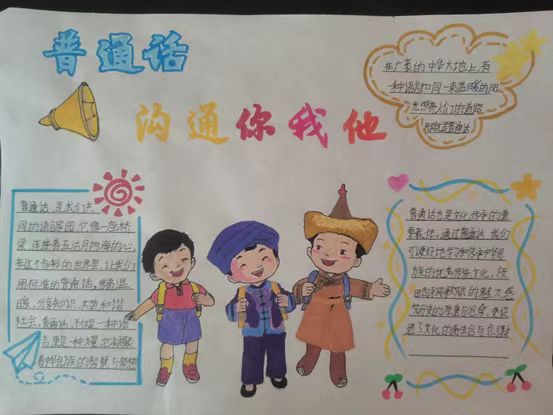 普通话
沟通你我他
在广袤的中华大地上,有
一种语言如同一束温暖的阳
光照亮人们的道路
那就是普通话
普通话,是我们共
同的语言家园,它像一座桥
梁,连接着五湖四海的心,
在这个多彩的世界里,让我们
用标准的普通话,传递温
暖,分享知识,共筑和谐
社会,普通话,不仅是一种语
言,更是一种力量,它凝聚
着中华民族的智慧与梦想
普通话也是文化传承的重
要载体,通过普通话,我们
可以更好地学习和传承中华民
族的优秀传统文化,
诗词歌赋的魅力,感
历史的厚重与沧桑,更促
进了文化的融合与包容